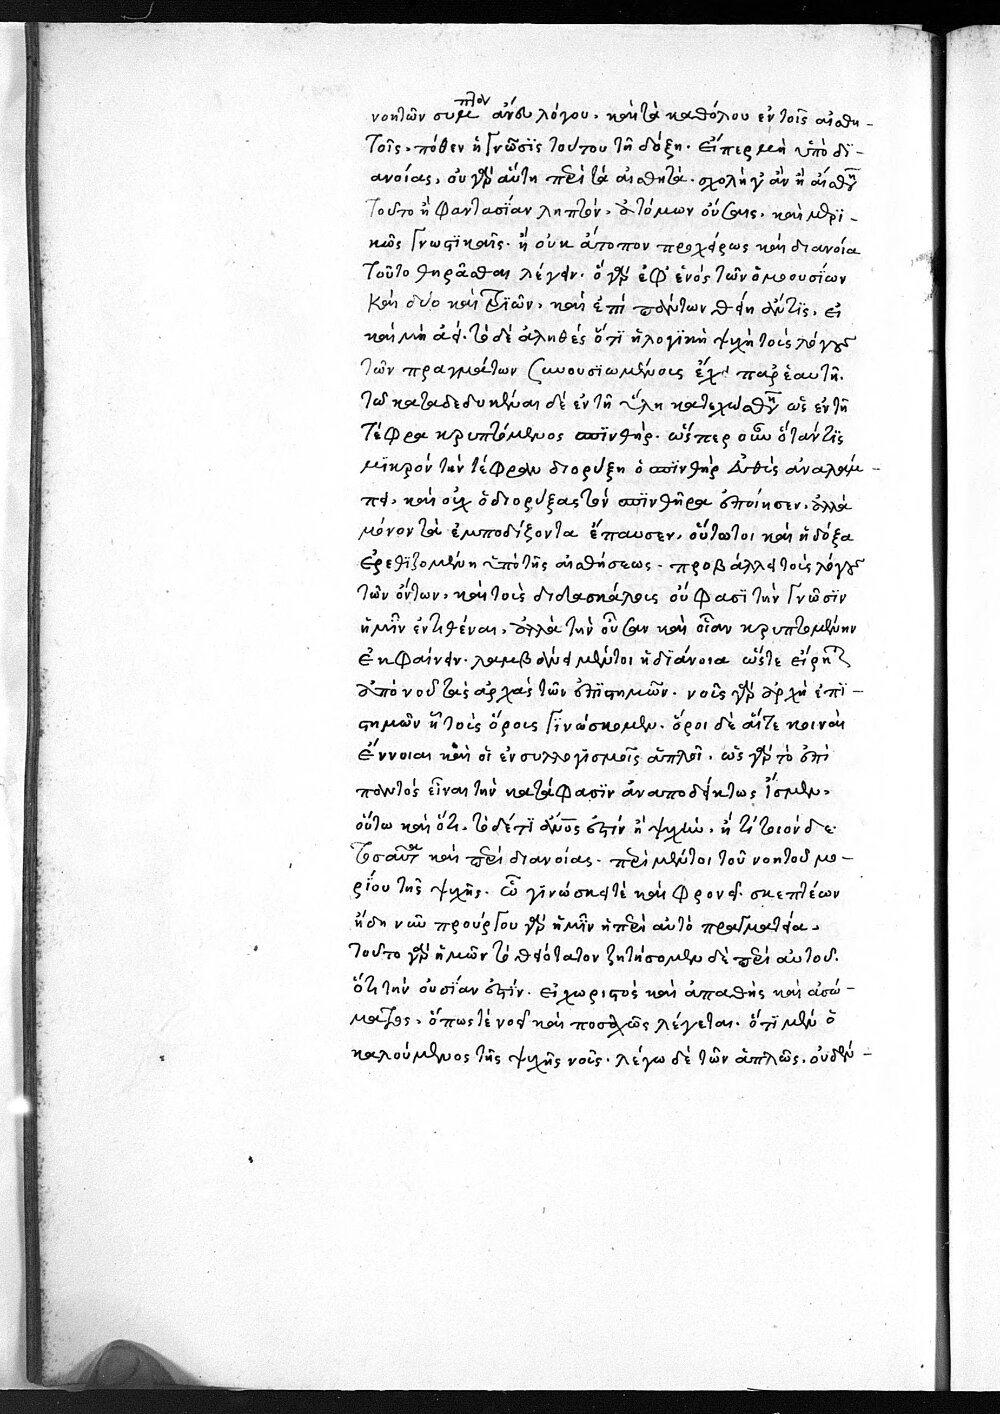 νοητῶν συμπλον ἄνευ λόγου. καὶ τὰ καθόλου ἐν τοῖς αἰσθη-
τοῖς. πόθεν ἡ γνῶσϊς τούτου τῇ δόξῃ. εἴπερ μὴ ὑπὸ δϊ-
ανοίας, οὐ γὰρ αὕτη περὶ τὰ αἰσθητά. σχολῇ γ' ἂν ἡ αἴσθησιν
τοῦτο ἢ φαντασΐαν ληπτὸν, ἀτόμων οὔσαις, καὶ μερϊ-
κῶς γνωστϊκαῖς. ἢ οὐκ ἄτοπον προχείρως καὶ διανοία
τοῦτο θηρᾶσθαι λέγειν. ὁ γὰρ ἐφ' ἑνὸς τῶν ὁμοουσίων
καὶ δύο καὶ τρϊῶν, καὶ ἐπὶ πάντων θείη ἄν τϊς, εἰ
καὶ μὴ ἀεὶ. τὸ δὲ ἀληθὲς ὅτϊ ἡ λογϊκὴ ψυχὴ τοὺς λόγους
τῶν πραγμάτων συνουσϊωμένους ἔχει παρ' ἑαυτῇ.
τῷ καταδεδυκέναι δὲ ἐν τῇ ὕλῃ κατεχώσθη ὡς ἐν τῇ
τέφρα κρυπτόμενος σπϊνθήρ. ὥσπερ οὖν ὅταν τϊς
μϊκρὸν τὴν τέφραν διορύξῃ ὁ σπϊνθὴρ εὐθὺς ἀναλάμ-
πει, καὶ οὐχ ὁ διορύξας τὸν σπϊνθῆρα ἐποίησεν, ἀλλὰ
μόνον τὰ ἐμποδίζοντα ἔπαυσεν, οὕτω τοι καὶ ἡ δόξα
ἐρεθιζομένη ὑπὸ τῆς αἰσθήσεως. προβάλλει τοὺς λόγους
τῶν ὄντων, καὶ τοὺς διδασκάλους οὔ φασϊ τὴν γνῶσϊν
ἡμῖν ἐντιθέναι, ἀλλὰ τὴν οὖσαν καὶ οἷον κρυπτομένην
ἐκφαίνειν. λαμβάνει μέντοι ἡ δϊάνοια ὥστε εἴρηται
ἀπὸ νοῦ τὰς ἀρχὰς τῶν ἐπϊστημῶν. νοῦς γὰρ ἀρχὴ ἐπϊ-
στημῶν ᾗ τοὺς ὅρους γϊνώσκομεν. ὅροι δὲ αἵτε κοιναὶ
ἔννοιαι καὶ οἱ ἐν συλλογϊσμοῖς ἁπλοῖ. ὡς γὰρ τὸ ἐπὶ
παντὸς εἶναι τὴν κατάφασϊν ἀναποδείκτως ἴσμεν,
οὕτω καὶ ὅτι. τὸ δέ τϊ ἐστὶν ἡ ψυχὴ. ἢ τί
ταῦτα καὶ περὶ διανοίας. περὶ μέντοι τοῦ νοητοῦ μο-
ρΐου τῆς ψυχῆς. ᾧ γϊνώσκει τὲ καὶ φρονεῖ. σκεπτέων
ἤδη νῦν προύργου γὰρ ἡμῖν ἡ περὶ αὐτὸ πραγματεία.
τοῦτο γὰρ ἡμῶν τὸ θειότατον ζητήσομεν δὲ περὶ αὐτοῦ.
ὅτι τὴν οὐσΐαν ἐστίν. εἰ χωριστὸς καὶ ἀπαθὴς καὶ ἀσώ-
ματος. ὅπως τὲ νοεῖ καὶ ποσαχῶς λέγεται. ὅτϊ μὲν ὁ
καλούμενος τῆς ψυχῆς νοῦς. λέγω δὲ τῶν ἁπλῶς. οὐδὲν-